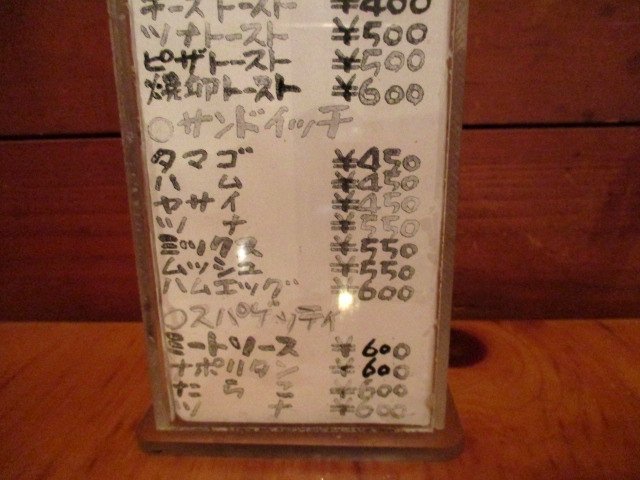 チーズトースト ¥400
ツナトースト ¥500
ピザトースト ¥500
焼卵トースト ¥600
○サンドイッチ
タマゴ ¥450
ハム ¥450
ヤサイ ¥450
ツナ ¥550
ミックス ¥550
ムッシュ ¥550
ハムエッグ ¥600
○スパゲッティ
ミートソース ¥600
ナポリタン ¥600
たらこ ¥600
ツナ ¥600